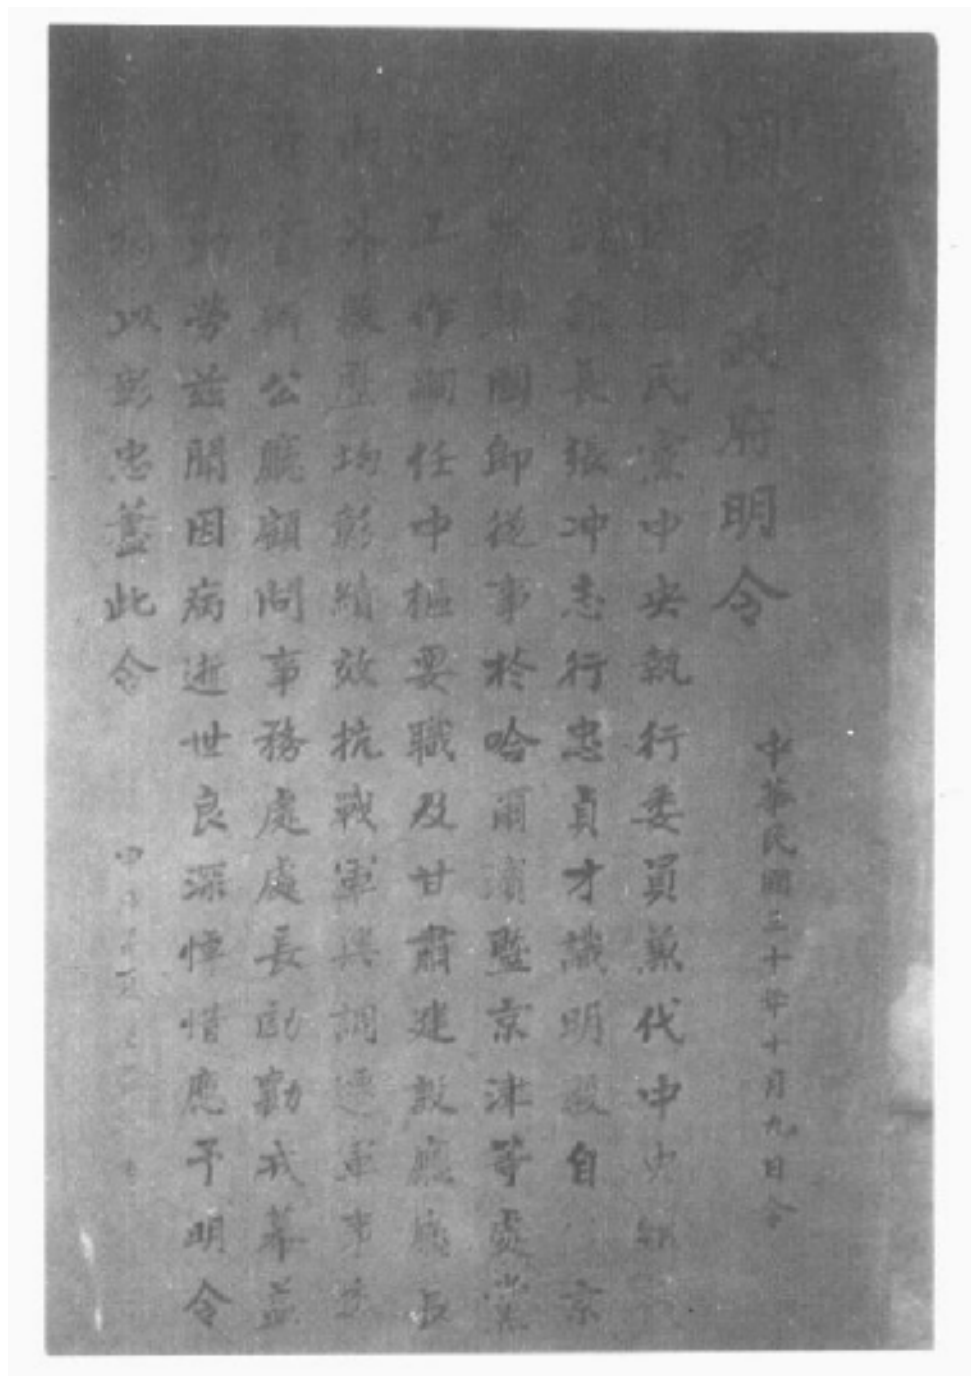 國民政府明令
中華民國三十年十月九日令
中國國民黨中央執行委員兼代中央組織
部副部長張冲志行忠貞才識明毅自 京
國即從事於哈爾濱暨京津等處黨
工作嗣任中樞要職及甘肅建設廳廳長
外敭歷均彰績效抗戰軍興調遷軍事
官辦公廳顧問事務處處長勷勤戎幕益
勤勞茲聞因病逝世良深悼惜應予明令
以彰忠藎此令